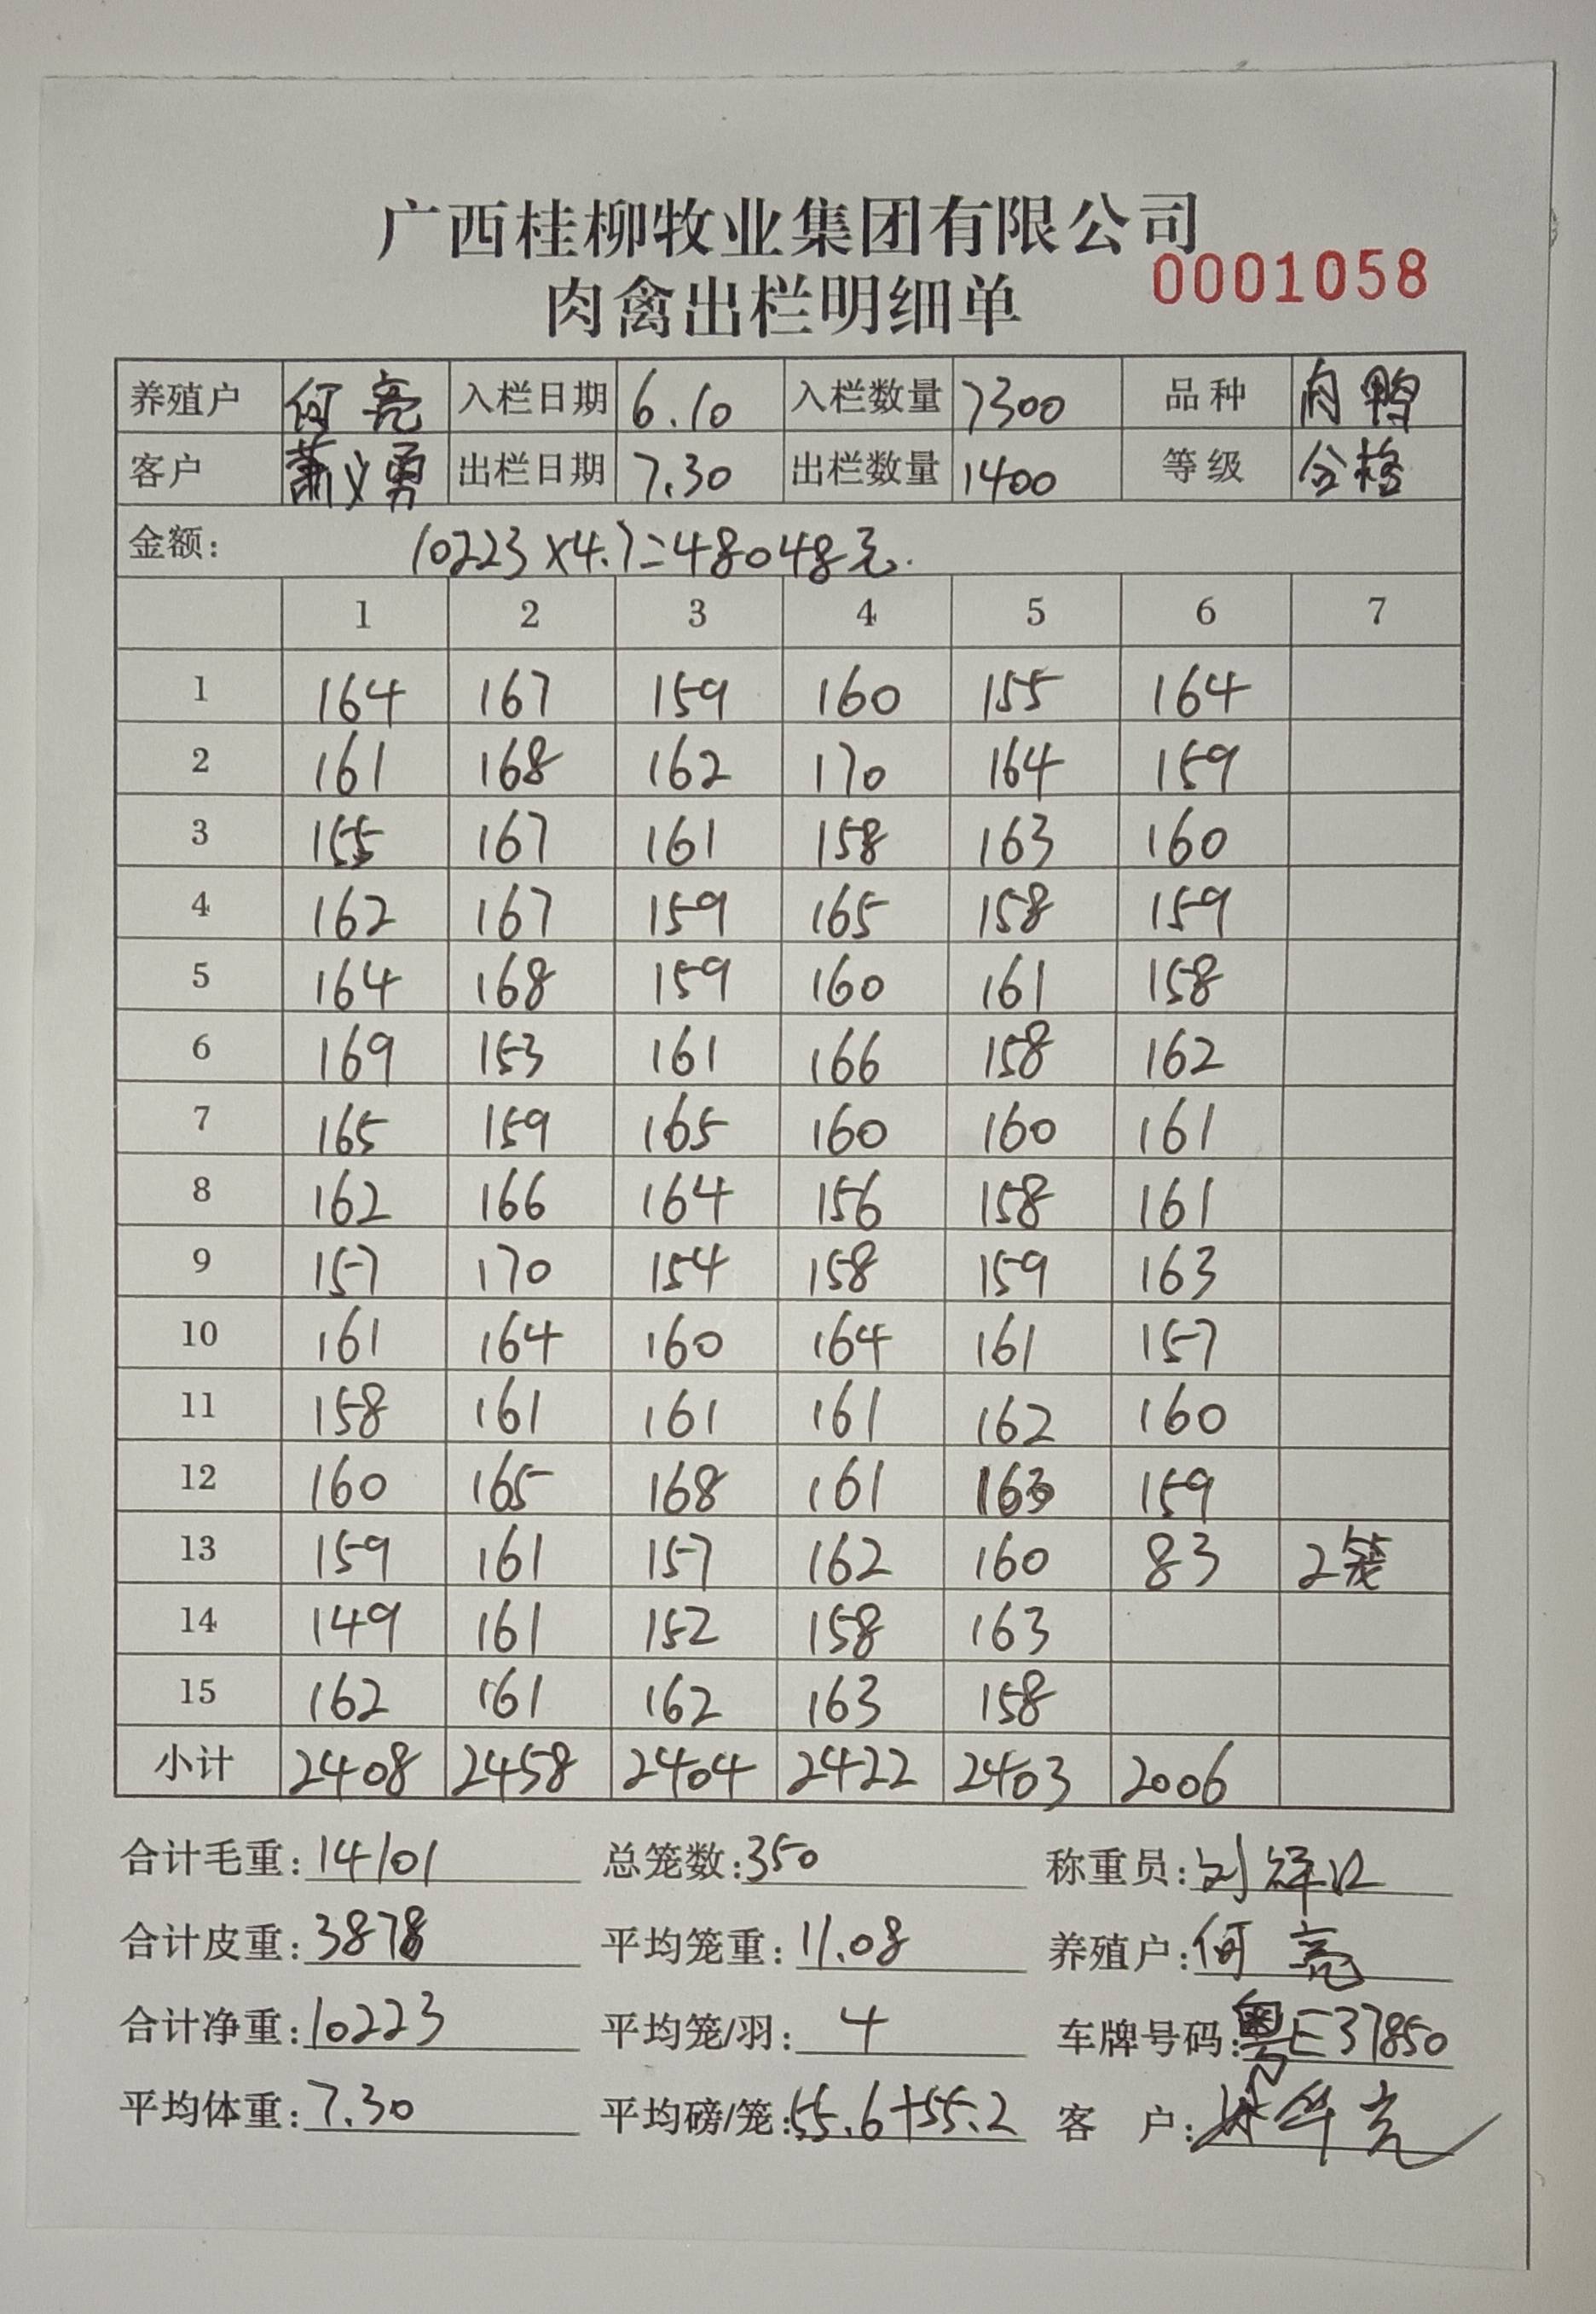 广西桂柳牧业集团有限公司
0001058
肉禽出栏明细单
养殖户 何亮 入栏日期 6.10 入栏数量 7300 品种 肉鸭
客户 萧义勇 出栏日期 7.30 出栏数量 1400 等级 合格
金额: 10223×4.7=48048元.
1 2 3 4 5 6 7
1 164 167 159 160 155 164
2 161 168 162 170 164 159
3 155 167 161 158 163 160
4 162 167 159 165 158 159
5 164 168 159 160 161 158
6 169 153 161 166 158 162
7 165 159 165 160 160 161
8 162 166 164 156 158 161
9 157 170 154 158 159 163
10 161 164 160 164 161 157
11 158 161 161 161 162 160
12 160 165 168 161 163 159
13 159 161 157 162 160 83 2笼
14 149 161 152 158 163
15 162 161 162 163 158
小计 2408 2458 2404 2422 2403 2006
合计毛重:14101 总笼数:350 称重员:刘
合计皮重:3878 平均笼重:11.08 养殖户:何亮
合计净重:10223 平均笼/羽:4 车牌号码:粤E37850
平均体重:7.30 平均磅/笼:55.6+55.2 客户: